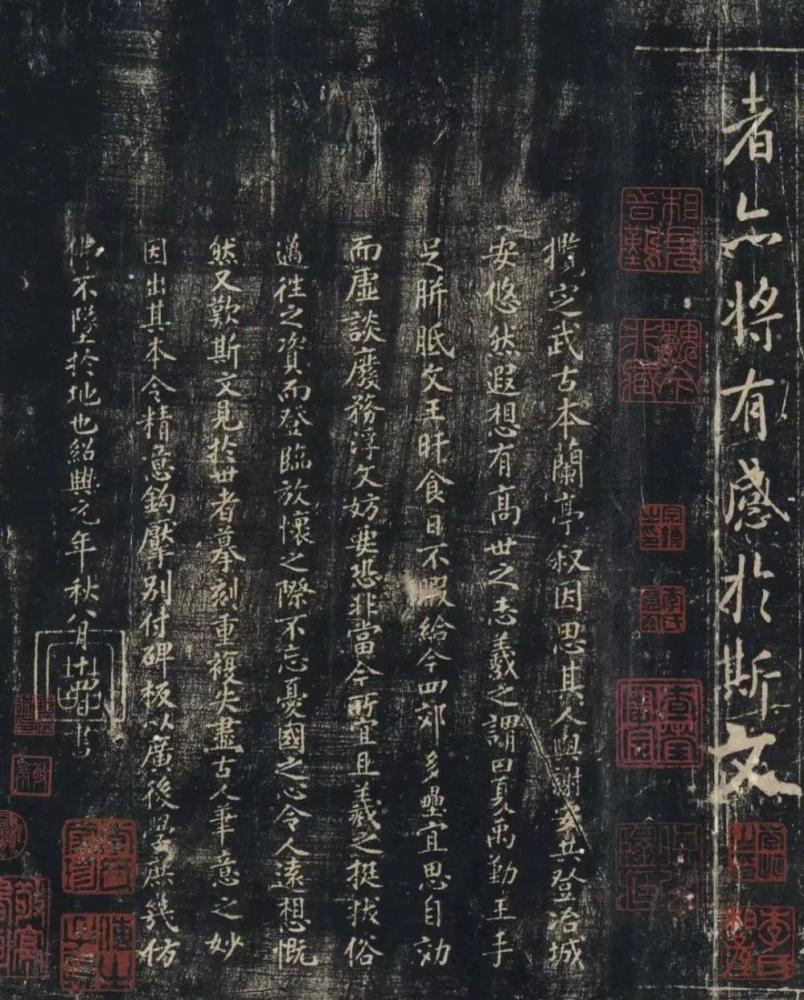 者亦将有感於斯文
攬定武古本蘭亭叙因思其人與謝安共登冶城
安悠然遐想有高世之志羲之謂曰夏禹勤王手
足胼胝文王旰食日不暇給今四郊多壘宜思自効
而虚談廢務浮文妨要恐非當今所宜且羲之挺拔俗
邁往之資而登臨放懷之際不忘憂國之心令人遠想慨
然又歎斯文見於世者摹刻重複失盡古人筆意之妙
因出其本令精意鈎摹別付碑板以廣後學庶幾仿
佛不墜於地也紹興元年秋八月十四日書